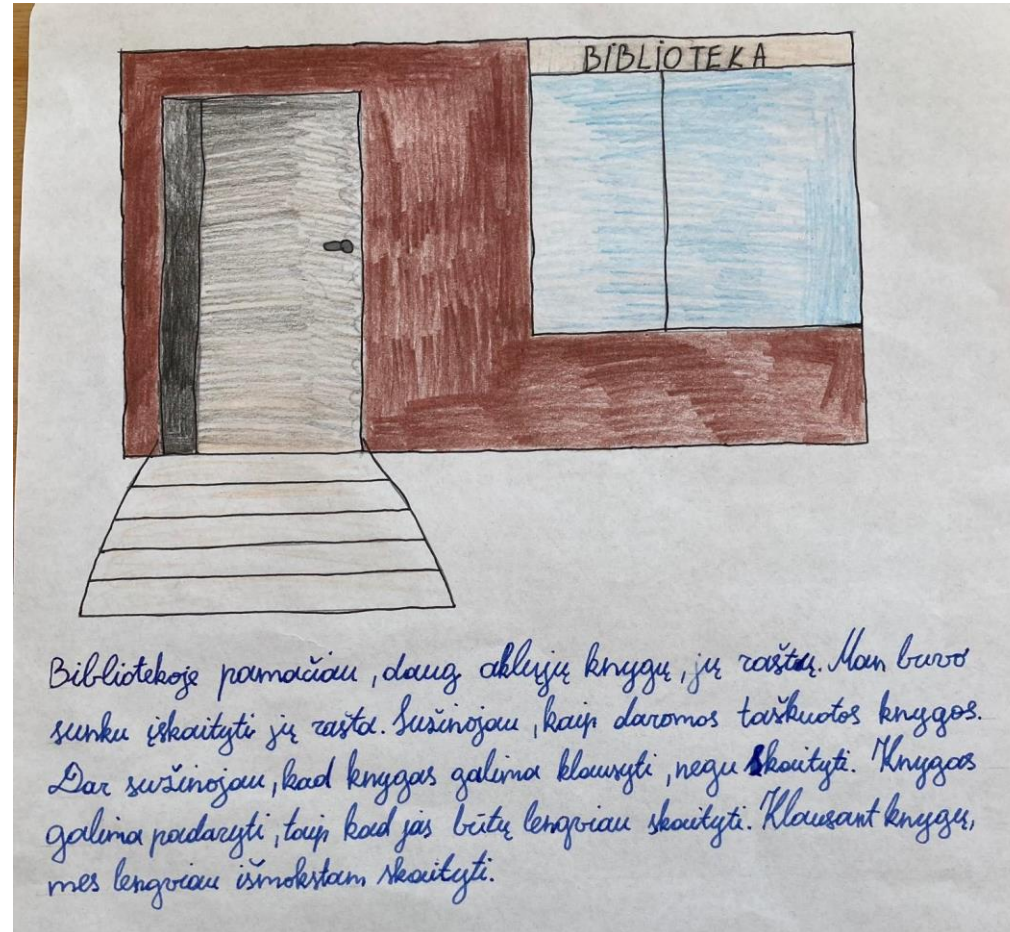 BIBLIOTEKA
Bibliotekoje pamačiau, daug aklųjų knygų, jų raštų. Man buvo
sunku įskaityti jų rašta. Sužinojau, kaip daromos taškuotos knygos.
Dar sužinojau, kad knygas galima klausyti, negu skaityti. Knygas
galima padaryti, taip kad jas būtų lengviau skaityti. Klausant knygų,
mes lengviau išmokstam skaityti.